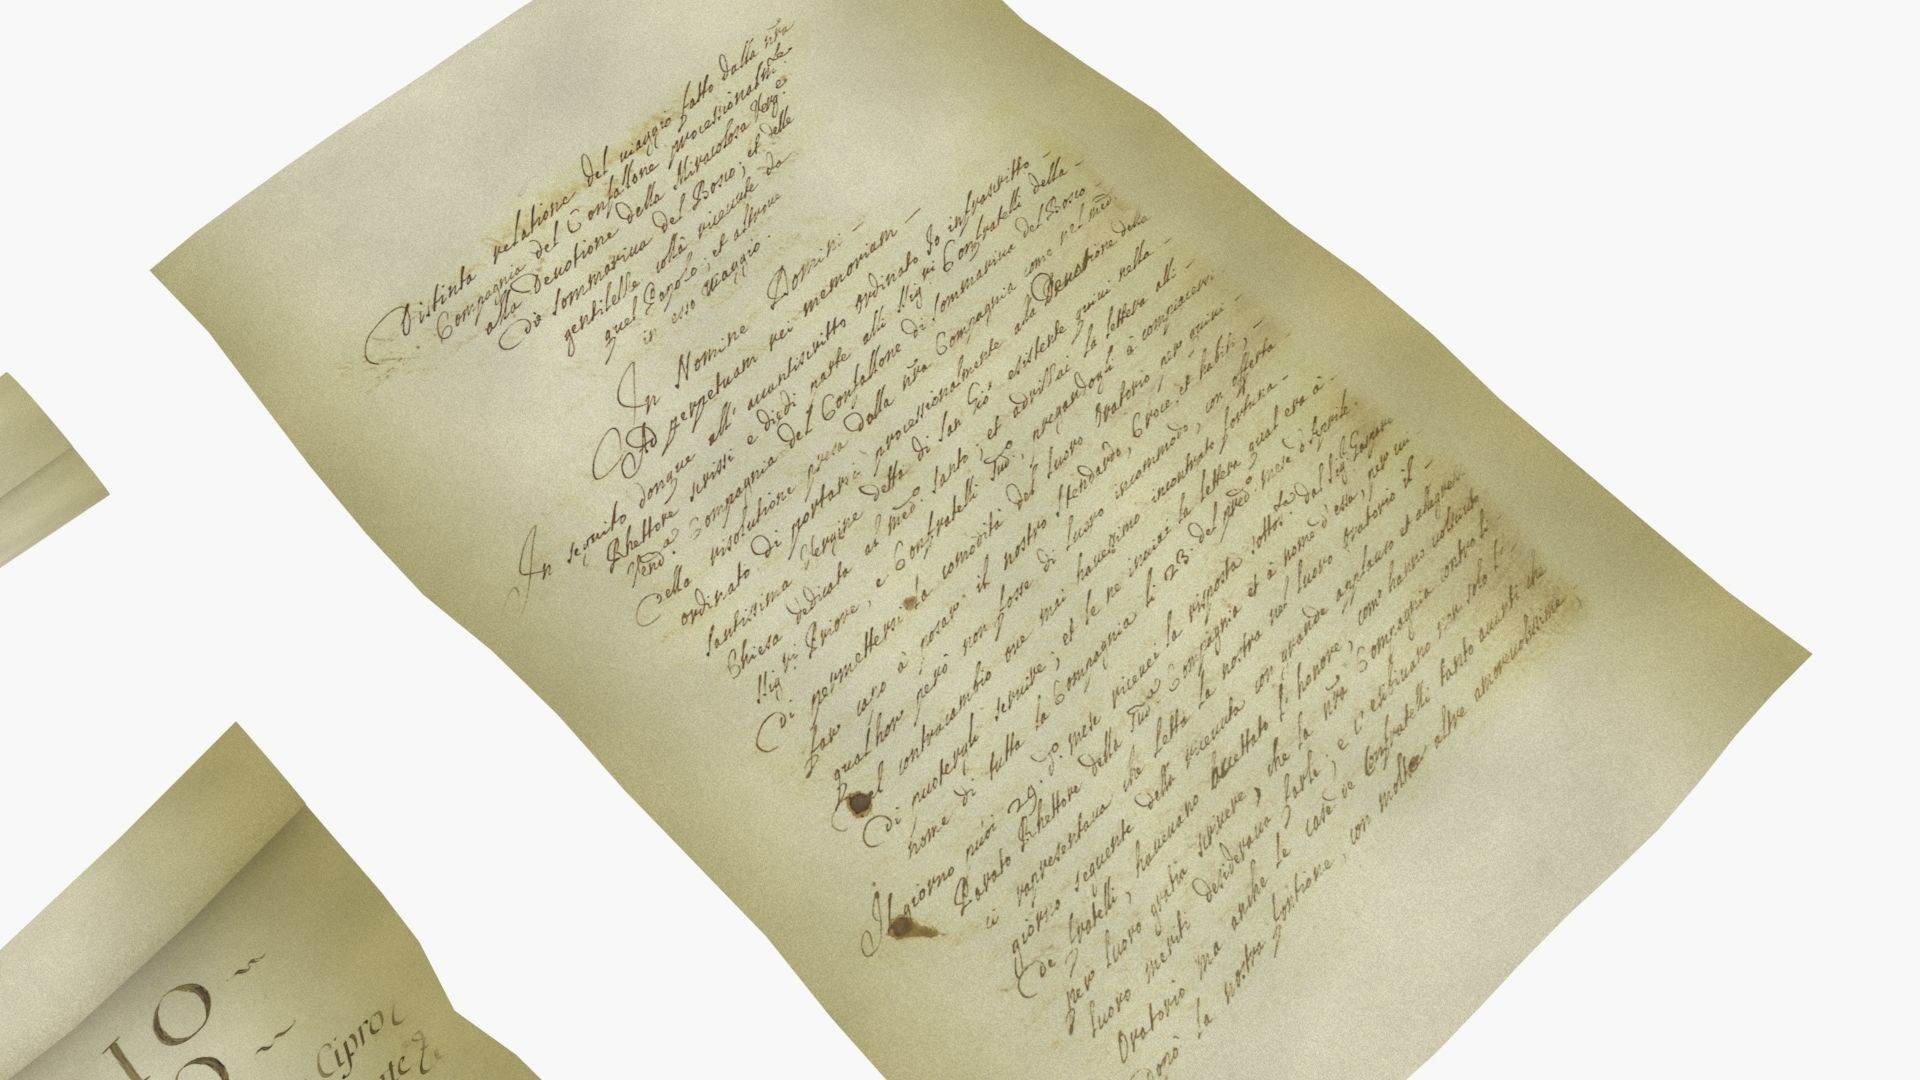 Distinta relatione del uiaggio fatto dalla nra
Compagnia del Confallone processionalmte
alla Deuotione della Miracolosa Verg.e
di Sommariua del Bosco; et delle
gentilesse colà riceuute da
quel Popolo; et altroue
in esso uiaggio.
In Nomine Domini
Ad perpetuam rei memoriam
In seguito donque all' auantiscritto ordinato Io infrascritto
Rhettore scrissi e diedi parte alli Sig.ri Confratelli della
Vend.a Compagnia del Confallone di Sommariua del Bosco
della risolutione presa dalla nra Compagnia come nel med.
ordinato di portarsi processionalmente alla Deuotione della
Santissima Vergine detta di San Gio esistente quiui nella
Chiesa dedicata al med.o Santo; et adrissai la lettera alli
Sig.ri Priore, e Confratelli Sud.i, pregandogli à compiacersi
di permettersi la comodità del luoro Oratorio per quiui
far capo à posar il nostro Stendardo, Croce, et habiti,
qual'hor però non fosse di luoro incommodo, con offerta
del contracambio oue mai hauessimo incontrato fortuna
di puotergli seruire; et le ne inuiai la lettera qual era à
nome di tutta la Compagnia li 23. del pred.o mese d'Aprile.
Il giorno puoi 29. d.o mese riceuei la risposta sotto la dal Sig. Gaspare
Pauato Rhettore della Sud.a Compagnia et à nome d'essa, per cui
ci rapresentaua che letta la nostra nel luoro Oratorio il
giorno sequente della riceuuta con grande applauso et allegressa
de fratelli, haueuano accettato l'honore, come hanno uolsciuto
per luoro gratia scriuere, che la nra Compagnia contro li
luoro meriti desideraua farli; e l'esibiuano non solo l'
Oratorio ma anche le case de Confratelli tanto auanti che
doppò la nostra fontione, con molte altre amoreuolissime
IO
Cipro